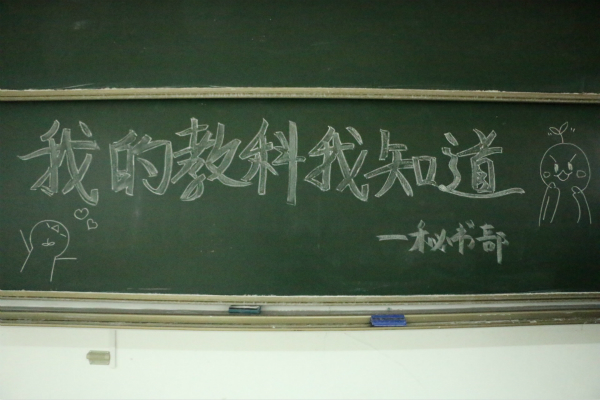 我的教科我知道
—秘书部